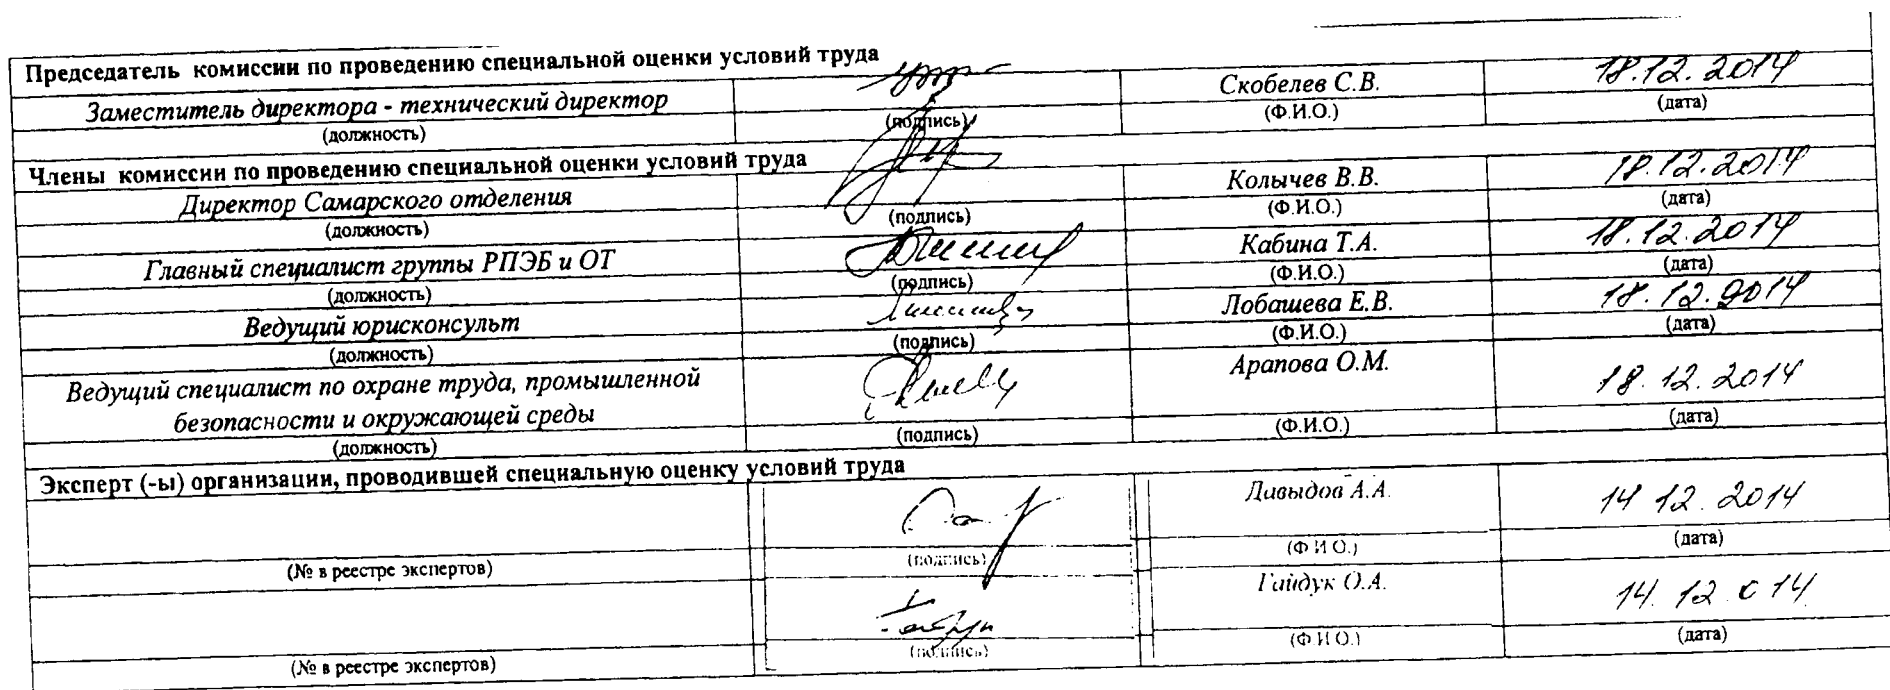 Председатель комиссии по проведению специальной оценки условий труда
Заместитель директора - технический директор Скобелев С.В. 18.12.2014
(должность) (подпись) (Ф.И.О.) (дата)
Члены комиссии по проведению специальной оценки условий труда
Директор Самарского отделения Колычев В.В. 18.12.2014
(должность) (подпись) (Ф.И.О.) (дата)
Главный специалист группы РПЭБ и ОТ Кабина Т.А. 18.12.2014
(должность) (подпись) (Ф.И.О.) (дата)
Ведущий юрисконсульт Лобашева Е.В. 18.12.2014
(должность) (подпись) (Ф.И.О.) (дата)
Ведущий специалист по охране труда, промышленной Арапова О.М. 18.12.2014
безопасности и окружающей среды
(должность) (подпись) (Ф.И.О.) (дата)
Эксперт (-ы) организации, проводившей специальную оценку условий труда
Давыдов А.А. 14 12. 2014
(№ в реестре экспертов) (подпись) (Ф.И.О.) (дата)
Гайдук О.А. 14. 12 014
(№ в реестре экспертов) (подпись) (Ф.И.О.) (дата)